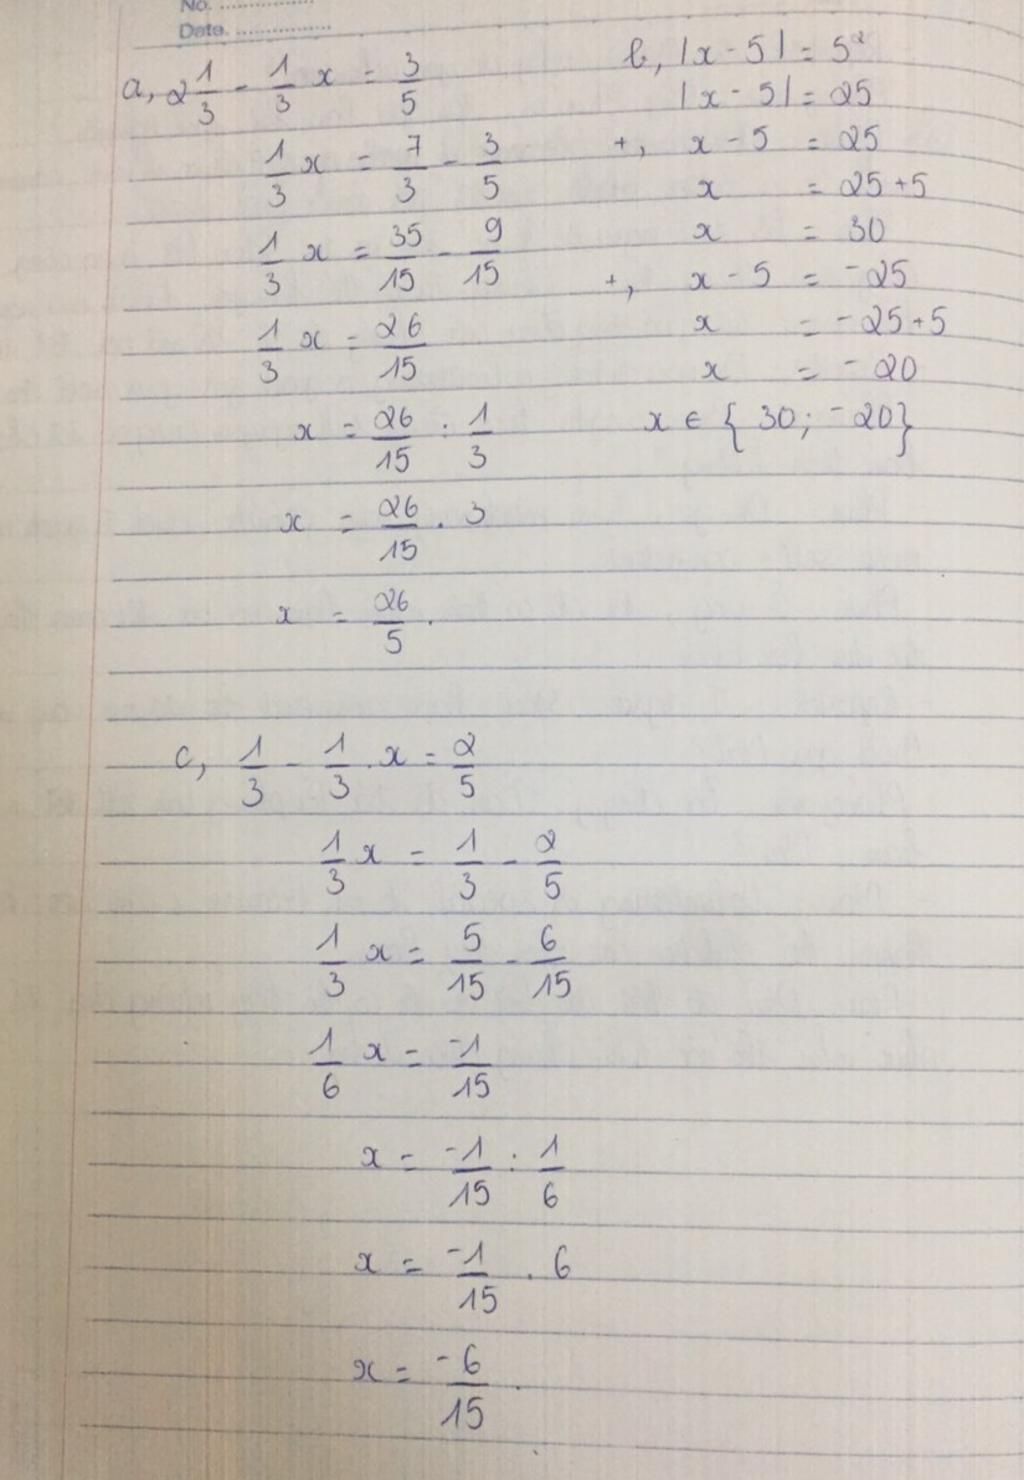 No. ..................
Date. ..................
a, 2 1/3 - 1/3 x = 3/5
1/3 x = 7/3 - 3/5
1/3 x = 35/15 - 9/15
1/3 x = 26/15
x = 26/15 : 1/3
x = 26/15 . 3
x = 26/5 .
b, |x - 5| = 5²
|x - 5| = 25
+, x - 5 = 25
x = 25 + 5
x = 30
+, x - 5 = -25
x = -25 + 5
x = -20
x ∈ { 30; -20}
c, 1/3 - 1/3 . x = 2/5
1/3 x = 1/3 - 2/5
1/3 x = 5/15 - 6/15
1/6 x = -1/15
x = -1/15 : 1/6
x = -1/15 . 6
x = -6/15 .